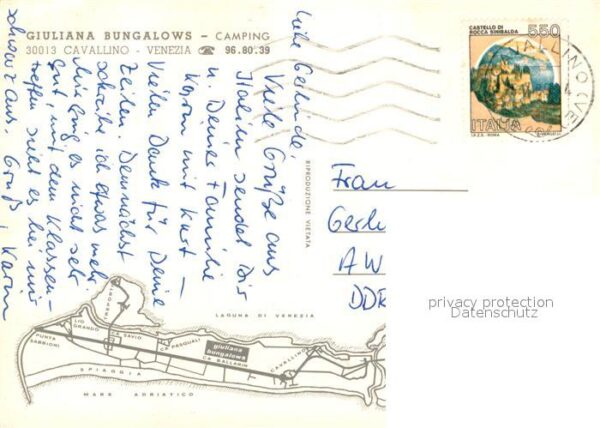 GIULIANA BUNGALOWS - CAMPING
30013 CAVALLINO - VENEZIA ☎ 96.80.39
Liebe Gerlinde,
Viele Grüße aus
Italien sendet Dir
u. Deiner Familie
Karin mit Kurt –
Vielen Dank für Deine
Zeilen. Demnächst
schreibe ich etwas mehr.
Mir ging es nicht sehr
gut, mit dem Klassen-
treffen sieht es bei mir
schwarz aus. Gruß, Karin
RIPRODUZIONE VIETATA
CASTELLO DI
ROCCA SINIBALDA
550
ITALIA
I.P.Z.S. - ROMA
Frau
Gerl
AW
DDR
privacy protection
Datenschutz
LAGUNA DI VENEZIA
TREPORTI
LIO
GRANDO
CA SAVIO
CA PASQUALI
giuliana
bungalows
CA BALLARIN
CAVALLINO
PUNTA
SABBIONI
SPIAGGIA
MARE ADRIATICO